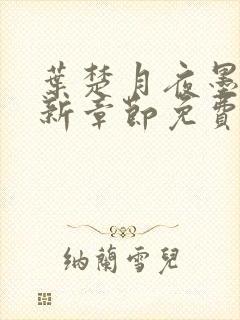 葉楚月夜墨
新章節免費
納蘭雪兒